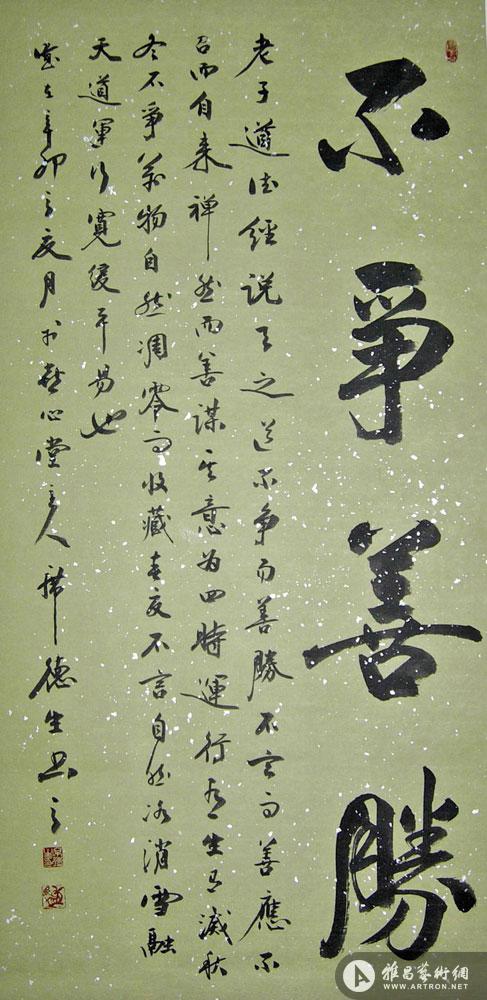 不爭善勝
老子道德经说天之道不争而善勝不言而善應不
召而自来禅然而善谋其意为四時運行有生有滅秋
冬不爭萬物自然凋零而收藏春夏不言自然冰消雪融
天道運行寬缓平易也
歲在辛卯之夏月于
心堂主人
德生书之
雅昌藝術網
WWW.ARTRON.NET